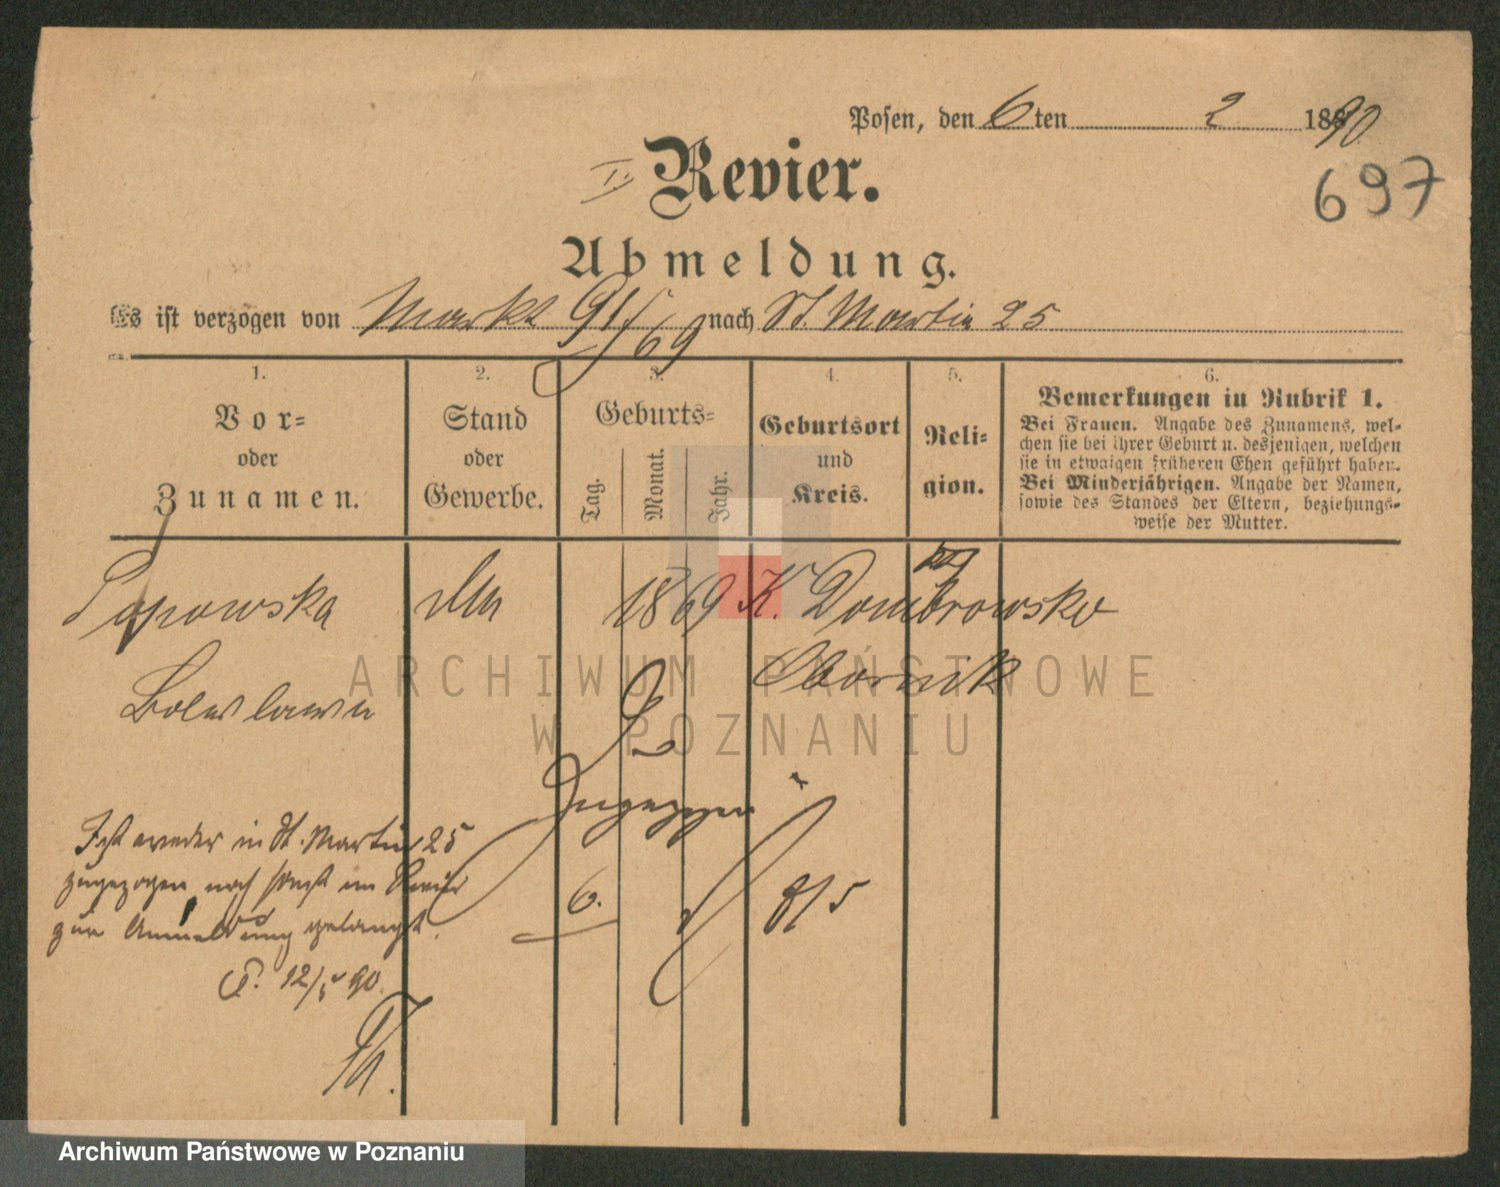 Posen, den 6ten 2 1890
697
I. Revier.
Abmeldung.
Es ist verzogen von Markt 91/69 nach St. Martin 25
1. 2. 3. 4. 5. 6.
Vor- oder Zunamen.
Stand oder Gewerbe.
Geburts-
Tag. Monat. Jahr.
Geburtsort und Kreis.
Reli-
gion.
Bemerkungen in Rubrik 1.
Bei Frauen. Angabe des Zunamens, wel-
chen sie bei ihrer Geburt u. desjenigen, welchen
sie in etwaigen früheren Ehen geführt haben.
Bei Minderjährigen. Angabe der Namen,
sowie des Standes der Eltern, beziehungs-
weise der Mutter.
Popowska 1869 K. Dombrowske
Boleslawa Obornik
Ist weder in St. Martin 25
zugezogen noch sonst im Revier
zur Anmeldung gelangt.
P. 12/5 90.
6. 8/5
ARCHIWUM PAŃSTWOWE
W POZNANIU
Archiwum Państwowe w Poznaniu